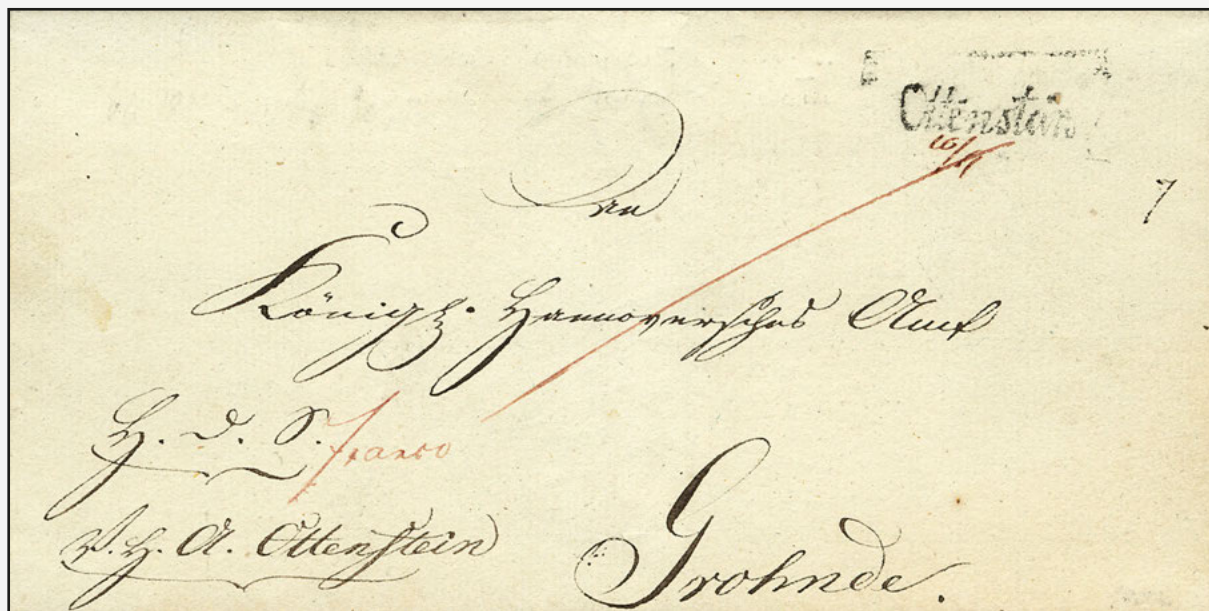 Ottenstein
16/11
An
Königl. Hannoversches Amt
H. D. S. franco
V. H. A. Ottenstein
Grohnde.